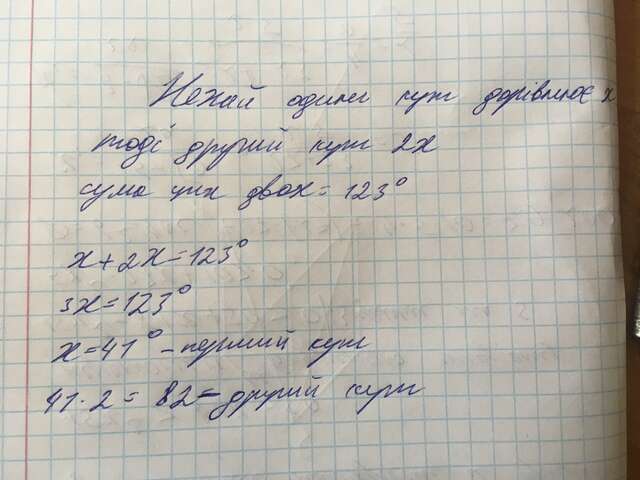 Нехай один кут дорівнює x
тоді другий кут 2x
сума цих двох = 123°
x+2x=123°
3x=123°
x=41° - перший кут
41·2= 82 - другий кут